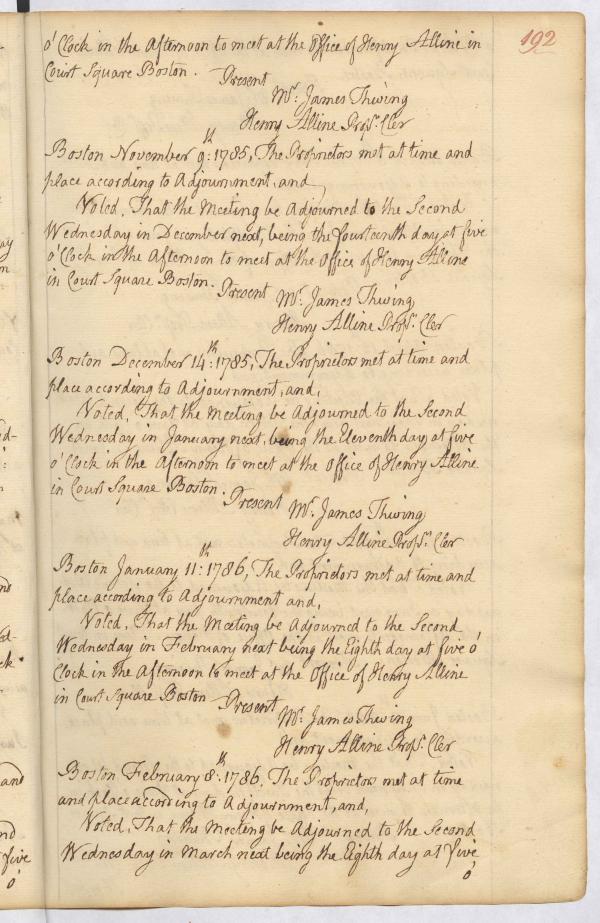 192
o' Clock in the Afternoon to meet at the Office of Henry Alline in
Court Square Boston.
Present
Mr. James Thwing
Henry Alline Props. Cler
Boston November 9th: 1785, The Proprietors met at time and
place according to Adjournment, and,
Voted, That the Meeting be Adjourned to the Second
Wednesday in December next, being the fourteenth day at five
o' Clock in the Afternoon to meet at the Office of Henry Alline
in Court Square Boston.
Present
Mr. James Thwing
Henry Alline Props. Cler
Boston December 14th: 1785, The Proprietors met at time and
place according to Adjournment, and,
Voted, That the Meeting be Adjourned to the Second
Wednesday in January next, being the Eleventh day at five
o' Clock in the Afternoon to meet at the Office of Henry Alline
in Court Square Boston.
Present
Mr. James Thwing
Henry Alline Props. Cler
Boston January 11th: 1786, The Proprietors met at time and
place according to Adjournment and,
Voted, That the Meeting be Adjourned to the Second
Wednesday in February next being the Eighth day at five o'
Clock in the Afternoon to meet at the Office of Henry Alline
in Court Square Boston
Present
Mr. James Thwing
Henry Alline Props. Cler
Boston February 8th: 1786, The Proprietors met at time
and place according to Adjournment, and,
Voted, That the Meeting be Adjourned to the Second
Wednesday in March next being the Eighth day at five
o'